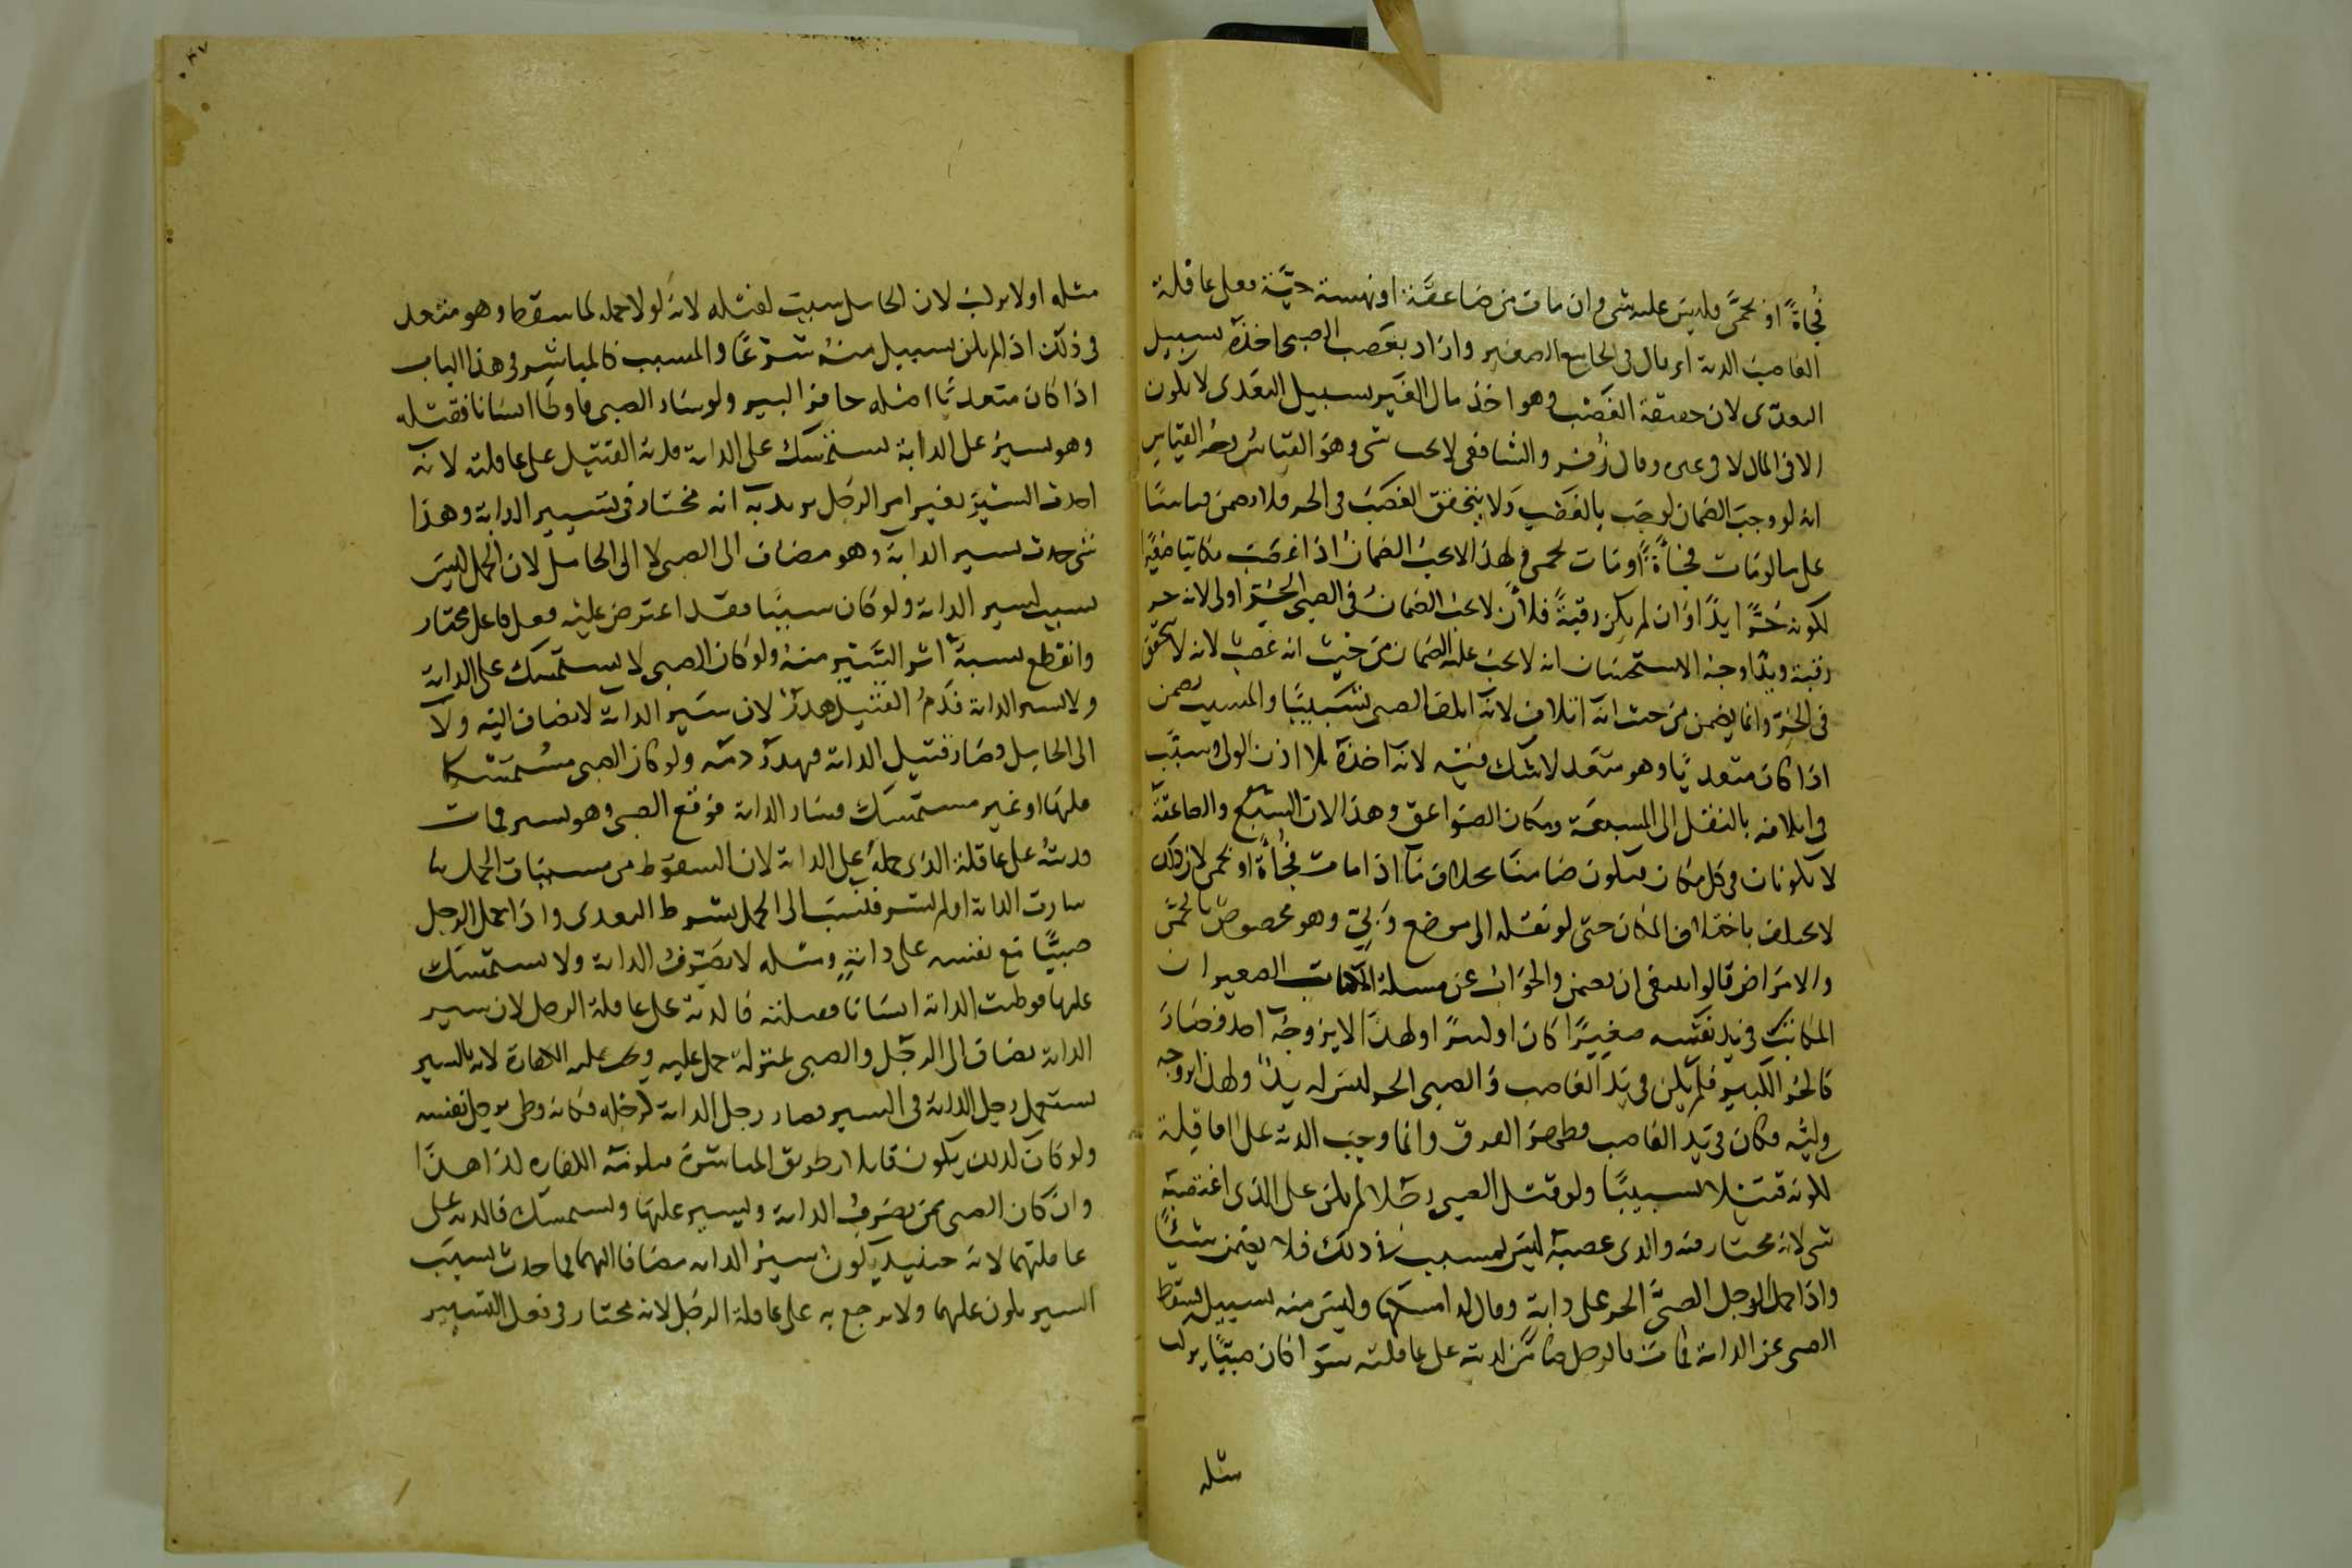 فُجاةً او بحمَّى فليسَ عليه شى وان مات من صَاعقَة او نهسة حيَّة فعلى عاقلة
الغاصب الدية اى قال فى الجامع الصغير واراد بغصب الصبى اخذه بسبيل
التعدّى لان حقيقة الغَصْب وهو اخذ مال الغَير بسبيل التعَدى لا يكون
الا فى المال لا فى غيره وقال زُفَر والشافعى لا يجب شى وهو القياسُ وجه القياس
انه لو وجبَ الضمان لوجَب بالغَصْبِ ولا يتحقق الغصَبُ فى الحر فلا يضمن قياسًا
على ما لو مَات فجاةً او مَات بحمى ولهذا لا يجبُ الضمان اذا غصَبَ مكاتبا صَغيرًا
لكونه حُرًّا يدًا وان لم يكن رقبةً فلأن لا يجبَ الضمانُ فى الصبى الحُرِّ اولى لانه حر
رقبة ويدًا وجهُ الاستحسَان انه لا يجبُ عليه الضمان من حَيث انه غَصبٌ لانه لا يتحقق
فى الحُرِّ وانما يضمن من حيث انه اتلاف لانه اتلف الصبى تَسْبيبًا والمسبب يضمن
اذا كان متعديًا وهو متعَد لا شك فيه لانه اخذه بلا اذن الولى وسبَّب
فى اتلافه بالنقل الى المسبعَة ومكان الصَواعق وهذا لان السَّبُع والصاعقة
لا يكونان فى كل مكان فيكون ضامنًا بخلاف مَا اذا مات فُجأةً او بحمى لان ذلك
لا يختلف باختلاف المكان حتى لو نقله الى موضع وَبِىٍّ وهو مخصوصٌ بالحمَّى
والامرَاض قالوا ينبغى ان يضمن والجوَاب عن مسئلة المكاتب الصغير ان
المكاتبَ فى يد نفسه صغيرًا كان او كبيرًا ولهذا لا يزوجهُ احد فصَارَ
كالحُرِّ الكبير فلم يكن فى يَد الغاصب والصبى الحر ليسَ له يدٌ ولهذا يزوجه
وليُّه فكان فى يَد الغاصب فظهر الفرق وانما وجبَ الدية على العاقلة
لكونه قتلا تسبيبًا ولو قتل الصبى رجُلا لم يكن على الذى اغتصبَه
شى لانه مختار فيه والذى غصبه ليس بمسبب فى ذلك فلا يضمن شيئًا
واذا حمل الرجل الصبىَّ الحر على دابةٍ وقال له امسكها وليسَ منه بسبيل فسقط
الصبى عن الدابة فمات فالرجل ضامن لديته على عاقلته سَوا كان صبيًّا يركب
مثله
مثله اولا يركبُ لان الحامل سبب لقتله لانه لولا حمله لما سقط وهو متعد
فى ذلك اذ لم يكن بسبيل منهُ شرعًا والمسبب كالمباشر فى هذا الباب
اذا كان متعديًا اصله حافر البير ولو سَار الصبى فاوطَا انسَانا فقتله
وهو يسيرُ على الدابة يستمسك على الدابة فدية القتيل على عاقلته لانه
احدث السَّيرَ بغير امر الرجل يريد به انه مختار فى تسيير الدابة وهذا
شى حدث بسير الدابة وهو مضاف الى الصبى لا الى الحامل لان الحمل ليسَ
بسبب لسير الدابة ولو كان سببًا فقد اعترض عليه فعل فاعل مختار
وانقطع نسبة اثر السَّير منهُ ولو كان الصبى لا يستمسك على الدابة
ولا يسير الدابة فدمُ القتيل هَدَرٌ لان سَير الدابة لا يضاف اليه ولا
الى الحامل وصَار قتيل الدابة فهدرَ دمه ولو كان الصبى مُستَمسِكا
عليهَا او غير مستمسِك فسَار الدابة فوَقع الصبى وهو يسير فمات
فديتهُ على عاقلة الذى حملهُ على الدابة لان السقوط من مسببات الحمل
سارت الدابة او لم تسر فنُسبَ الى الحمل بشرط التعدى واذا حمل الرجل
صبيًّا مَع نفسه على دابةٍ ومثله لا يَصرِفُ الدابة ولا يستمسَك
عليها فوطئت الدابة انسَانا فقتلته فالدية على عاقلة الرجل لان سير
الدابة يضاف الى الرجُل والصبى بمنزلة حمل عليه ويجب عليه الكفارة لانه بالسير
يستعمل رجل الدابة فى السير فصار رجل الدابة كرجله فكانه وطى برجل نفسه
ولو كان كذلك يكون قاتلا بطريق المباشرَة فيلزمه الكفارة لذا هذَا
وان كان الصبى ممن يصَرفُ الدابة ويسير عليهَا ويستمسك فالدية على
عاقلتهما لانه حينئيذ يكون سيرُ الدابة مضافا اليهما فما حدث بسَبَب
السير يكون عليهما ولا يرجع به على عاقلة الرجُل لانه مختار فى فعل التسيير